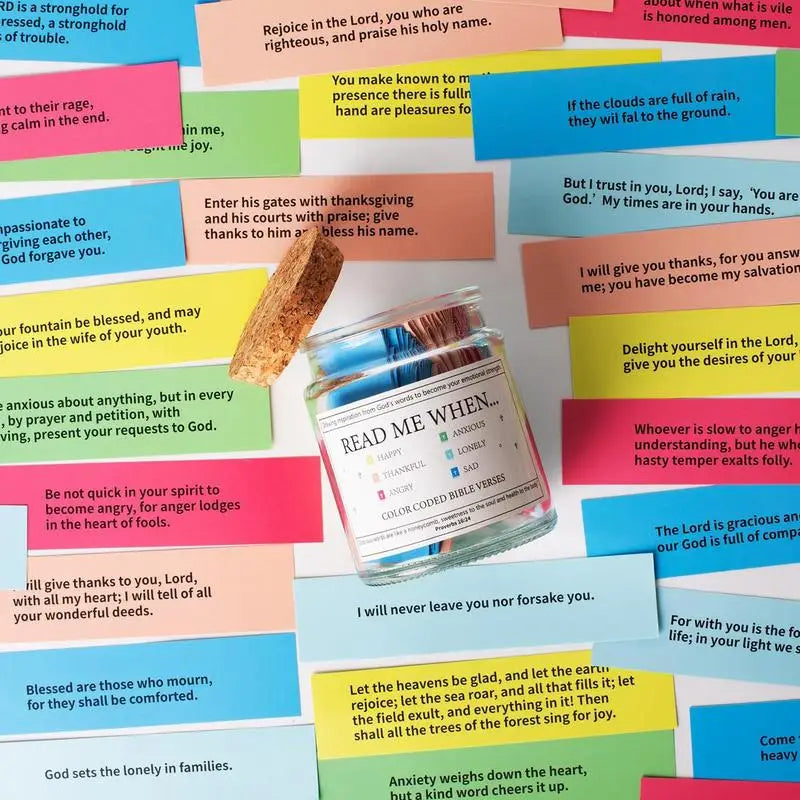 RD is a stronghold for
ressed, a stronghold
s of trouble.
Rejoice in the Lord, you who are
righteous, and praise his holy name.
about when what is vile
is honored among men.
You make known to m
presence there is fulln
hand are pleasures fo
If the clouds are full of rain,
they wil fal to the ground.
nt to their rage,
g calm in the end.
in me,
me joy.
But I trust in you, Lord; I say, ‘You are
God.’ My times are in your hands.
Enter his gates with thanksgiving
and his courts with praise; give
thanks to him and bless his name.
mpassionate to
rgiving each other,
God forgave you.
I will give you thanks, for you answ
me; you have become my salvation
our fountain be blessed, and may
joice in the wife of your youth.
Delight yourself in the Lord,
give you the desires of your
e anxious about anything, but in every
, by prayer and petition, with
ving, present your requests to God.
Whoever is slow to anger h
understanding, but he who
hasty temper exalts folly.
Drawing inspiration from God's words to become your emotional strength
READ ME WHEN...
HAPPY
THANKFUL
ANGRY
ANXIOUS
LONELY
SAD
COLOR CODED BIBLE VERSES
Gracious words are like a honeycomb, sweetness to the soul and health to the body
Proverbs 16:24
Be not quick in your spirit to
become angry, for anger lodges
in the heart of fools.
The Lord is gracious an
our God is full of compa
will give thanks to you, Lord,
with all my heart; I will tell of all
your wonderful deeds.
I will never leave you nor forsake you.
For with you is the fo
life; in your light we s
Blessed are those who mourn,
for they shall be comforted.
Let the heavens be glad, and let the earth
rejoice; let the sea roar, and all that fills it; let
the field exult, and everything in it! Then
shall all the trees of the forest sing for joy.
Come
heavy
God sets the lonely in families.
Anxiety weighs down the heart,
but a kind word cheers it up.